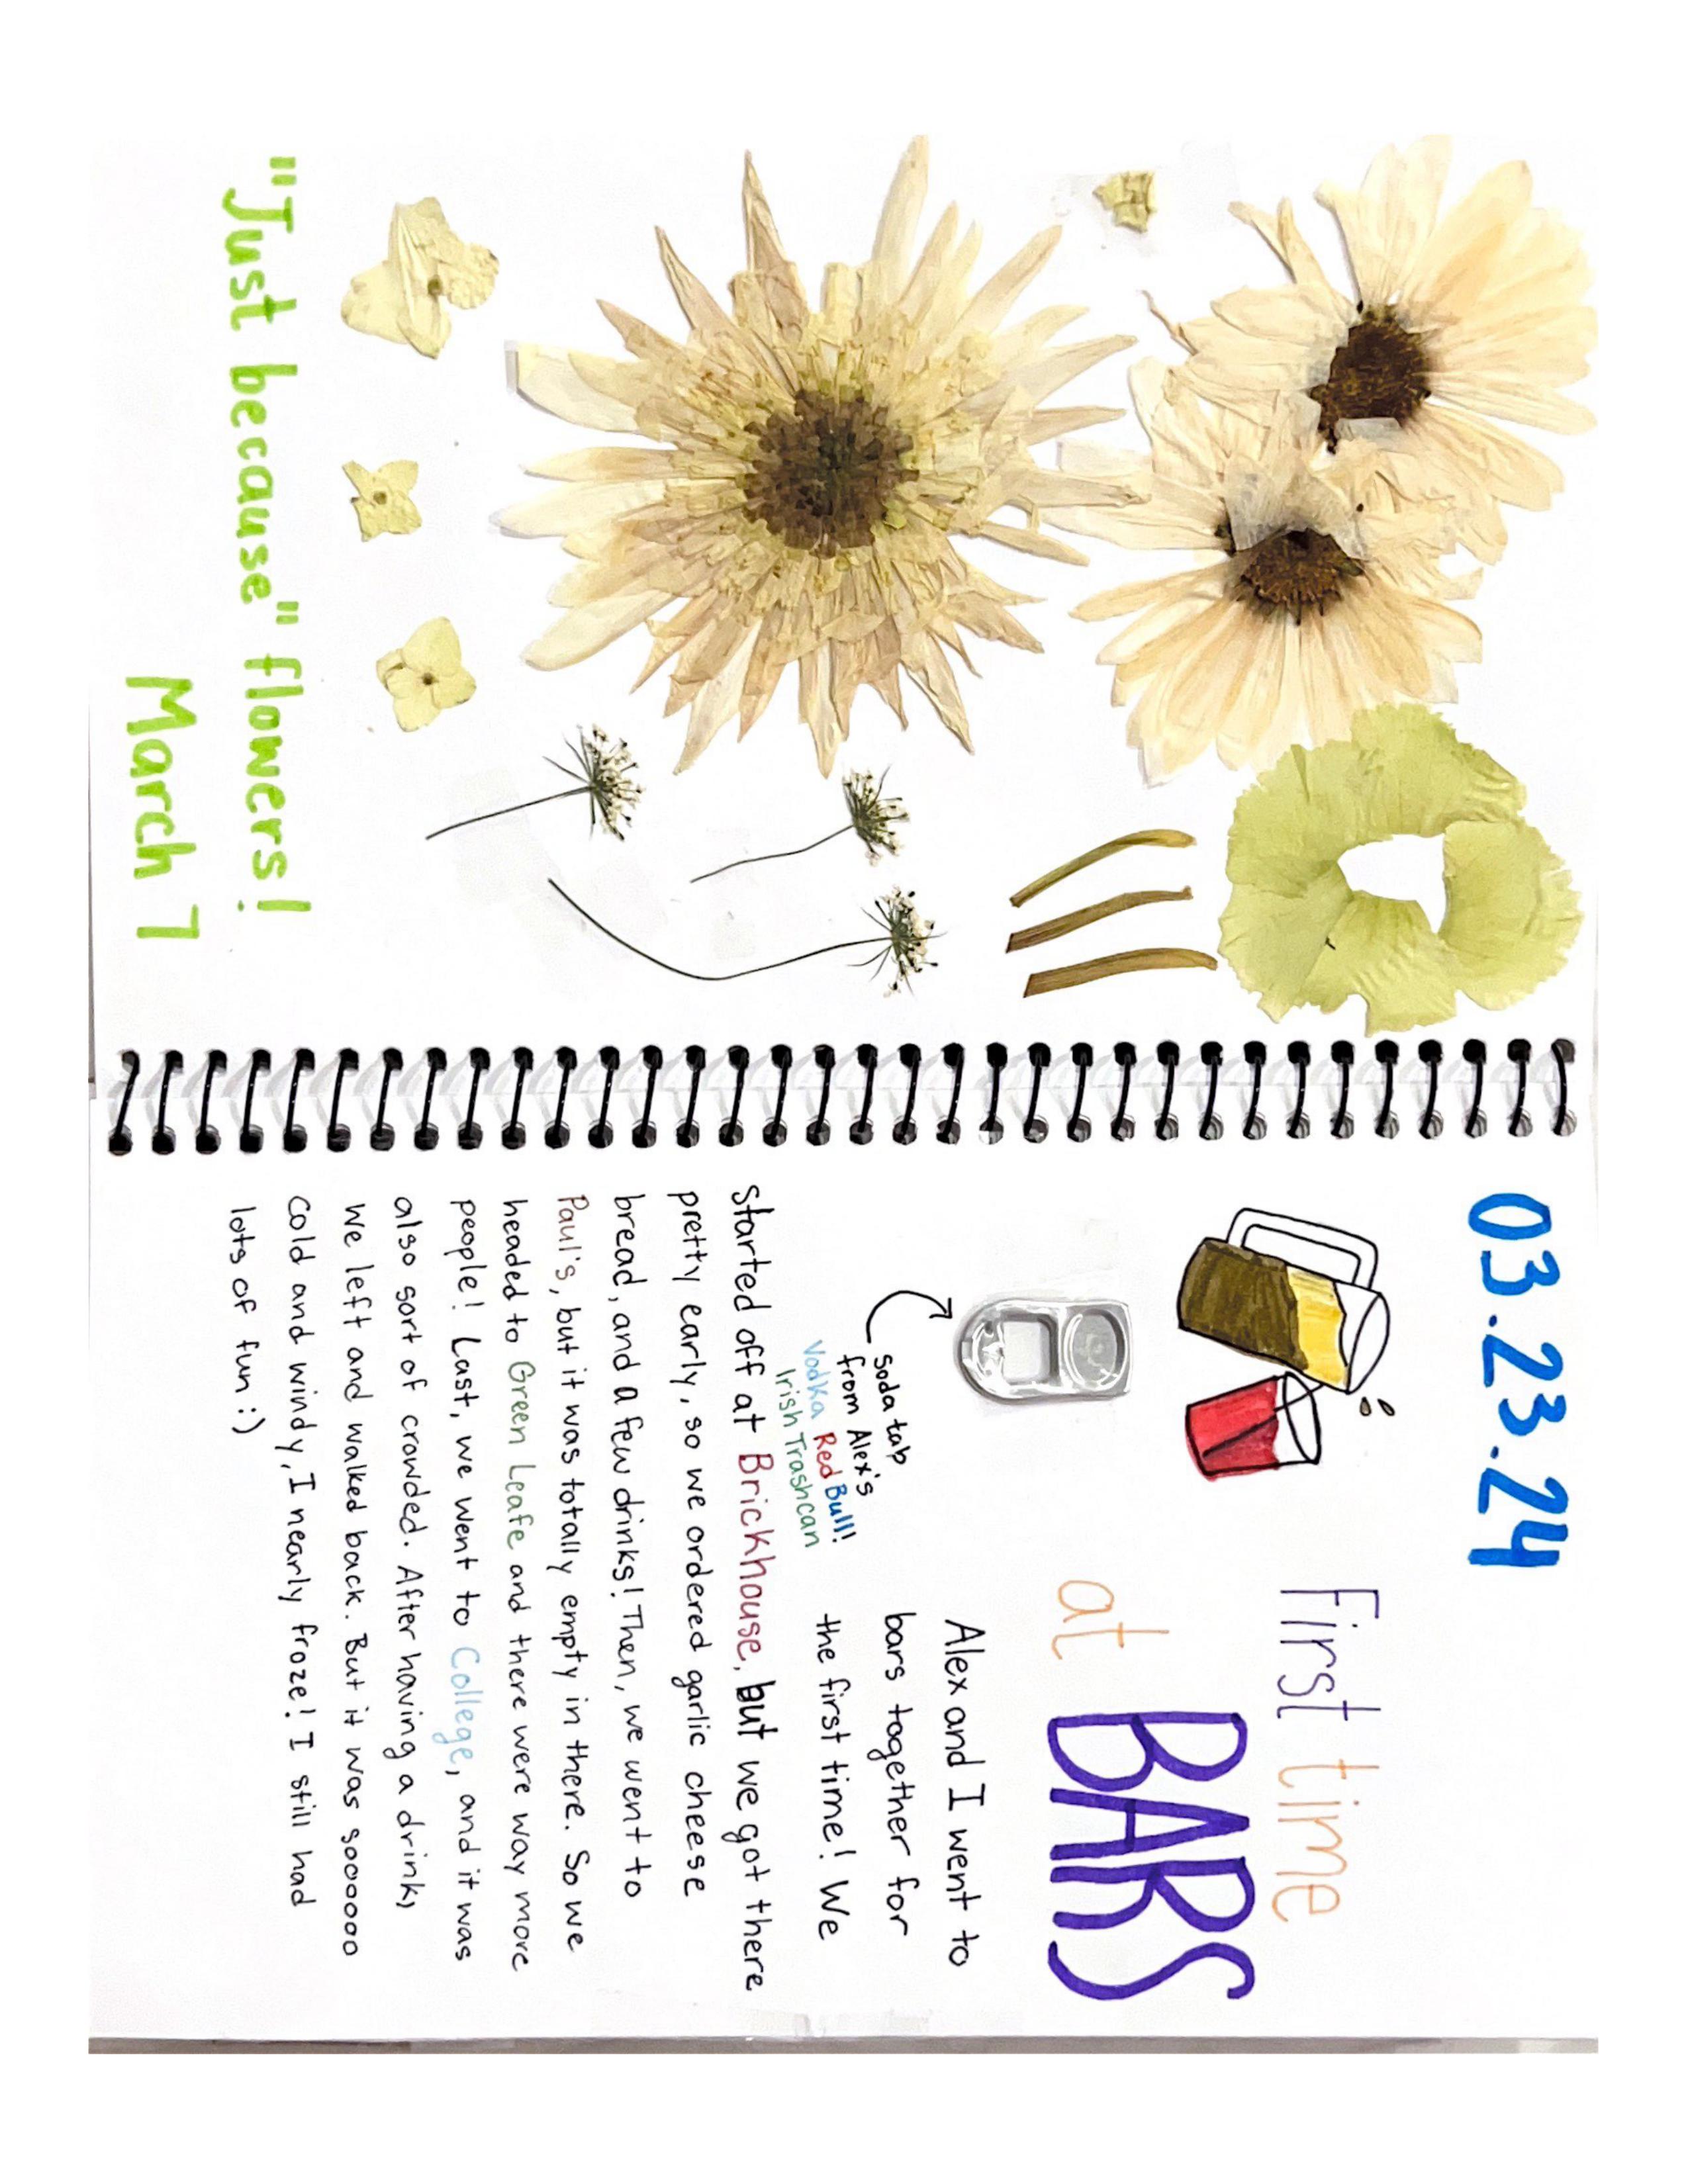 "Just because" flowers!
March 7
03.23.24
First time
at BARS
Soda tab
from Alex's
Vodka Red Bull!
Irish Trashcan
Alex and I went to
bars together for
the first time! We
started off at Brickhouse, but we got there
pretty early, so we ordered garlic cheese
bread, and a few drinks! Then, we went to
Paul's, but it was totally empty in there. So we
headed to Green Leafe and there were way more
people! Last, we went to College, and it was
also sort of crowded. After having a drink,
we left and walked back. But it was soooooo
cold and windy, I nearly froze! I still had
lots of fun :)